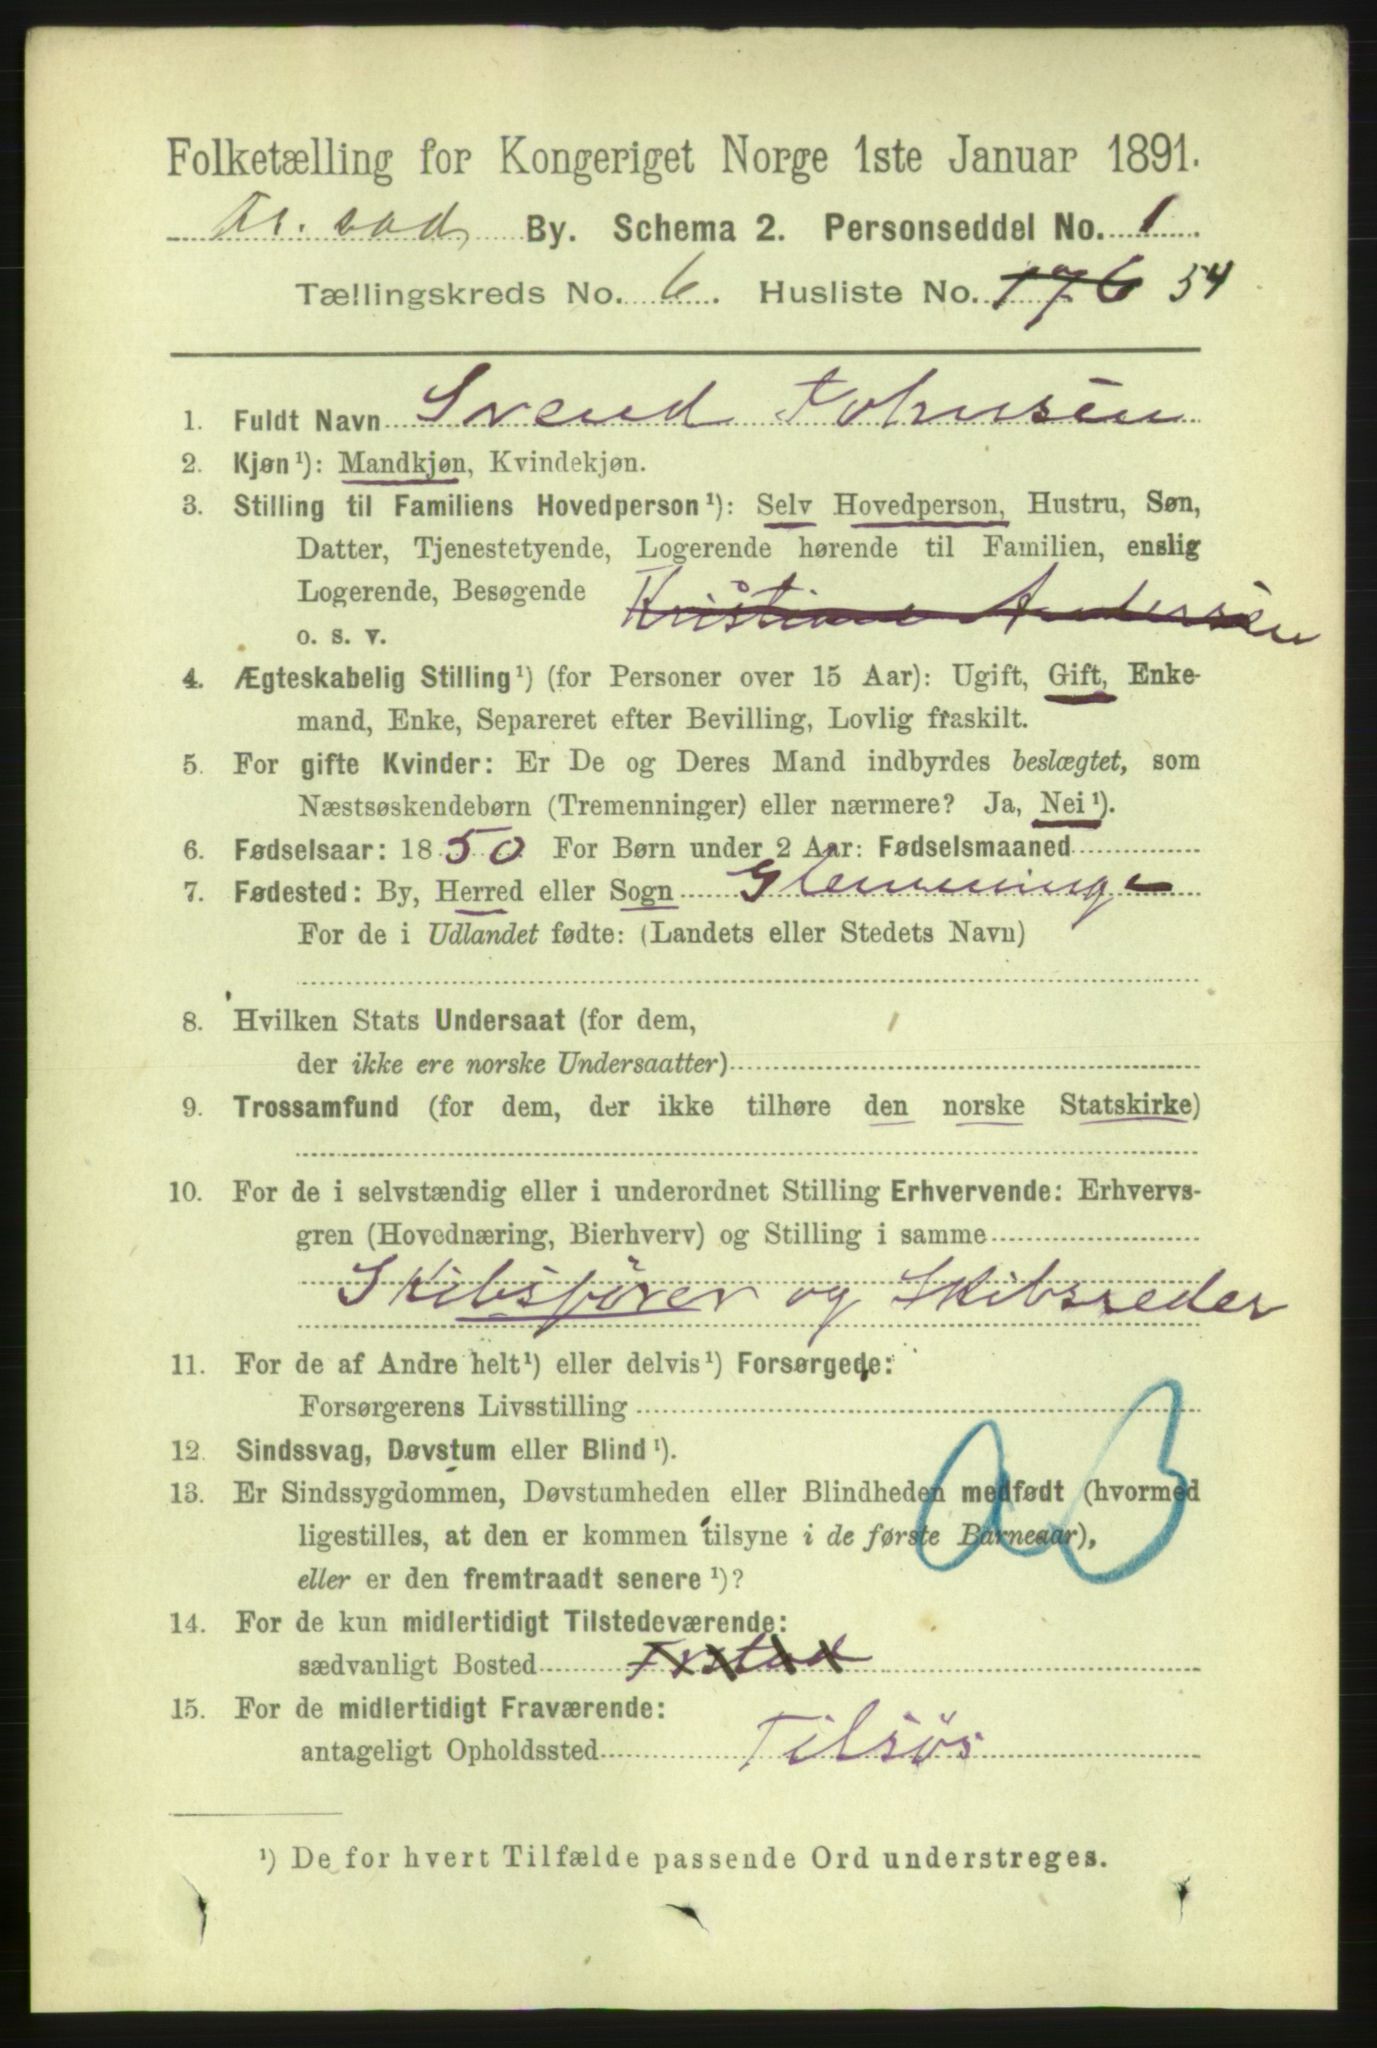 Folketælling for Kongeriget Norge 1ste Januar 1891.
Fr. stad By. Schema 2. Personseddel No. 1
Tællingskreds No. 6. Husliste No. 176 54
1. Fuldt Navn Svend Johnsen
2. Kjøn ¹): Mandkjøn, Kvindekjøn.
3. Stilling til Familiens Hovedperson ¹): Selv Hovedperson, Hustru, Søn,
Datter, Tjenestetyende, Logerende hørende til Familien, enslig
Logerende, Besøgende Kristiane Andersen
o. s. v.
4. Ægteskabelig Stilling ¹) (for Personer over 15 Aar): Ugift, Gift, Enke-
mand, Enke, Separeret efter Bevilling, Lovlig fraskilt.
5. For gifte Kvinder: Er De og Deres Mand indbyrdes beslægtet, som
Næstsøskendebørn (Tremenninger) eller nærmere? Ja, Nei ¹).
6. Fødselsaar: 1850 For Børn under 2 Aar: Fødselsmaaned
7. Fødested: By, Herred eller Sogn Glemminge
For de i Udlandet fødte: (Landets eller Stedets Navn)
8. Hvilken Stats Undersaat (for dem,
der ikke ere norske Undersaatter)
9. Trossamfund (for dem, der ikke tilhøre den norske Statskirke)
10. For de i selvstændig eller i underordnet Stilling Erhvervende: Erhvervs-
gren (Hovednæring, Bierhverv) og Stilling i samme
Skibsfører og Skibsreder
11. For de af Andre helt ¹) eller delvis ¹) Forsørgede:
Forsørgerens Livsstilling
12. Sindssvag, Døvstum eller Blind ¹).
13. Er Sindssygdommen, Døvstumheden eller Blindheden medfødt (hvormed
ligestilles, at den er kommen tilsyne i de første Barneaar),
eller er den fremtraadt senere ¹)?
14. For de kun midlertidigt Tilstedeværende:
sædvanligt Bosted Frstad
15. For de midlertidigt Fraværende:
antageligt Opholdssted Tilsøs
¹) De for hvert Tilfælde passende Ord understreges.